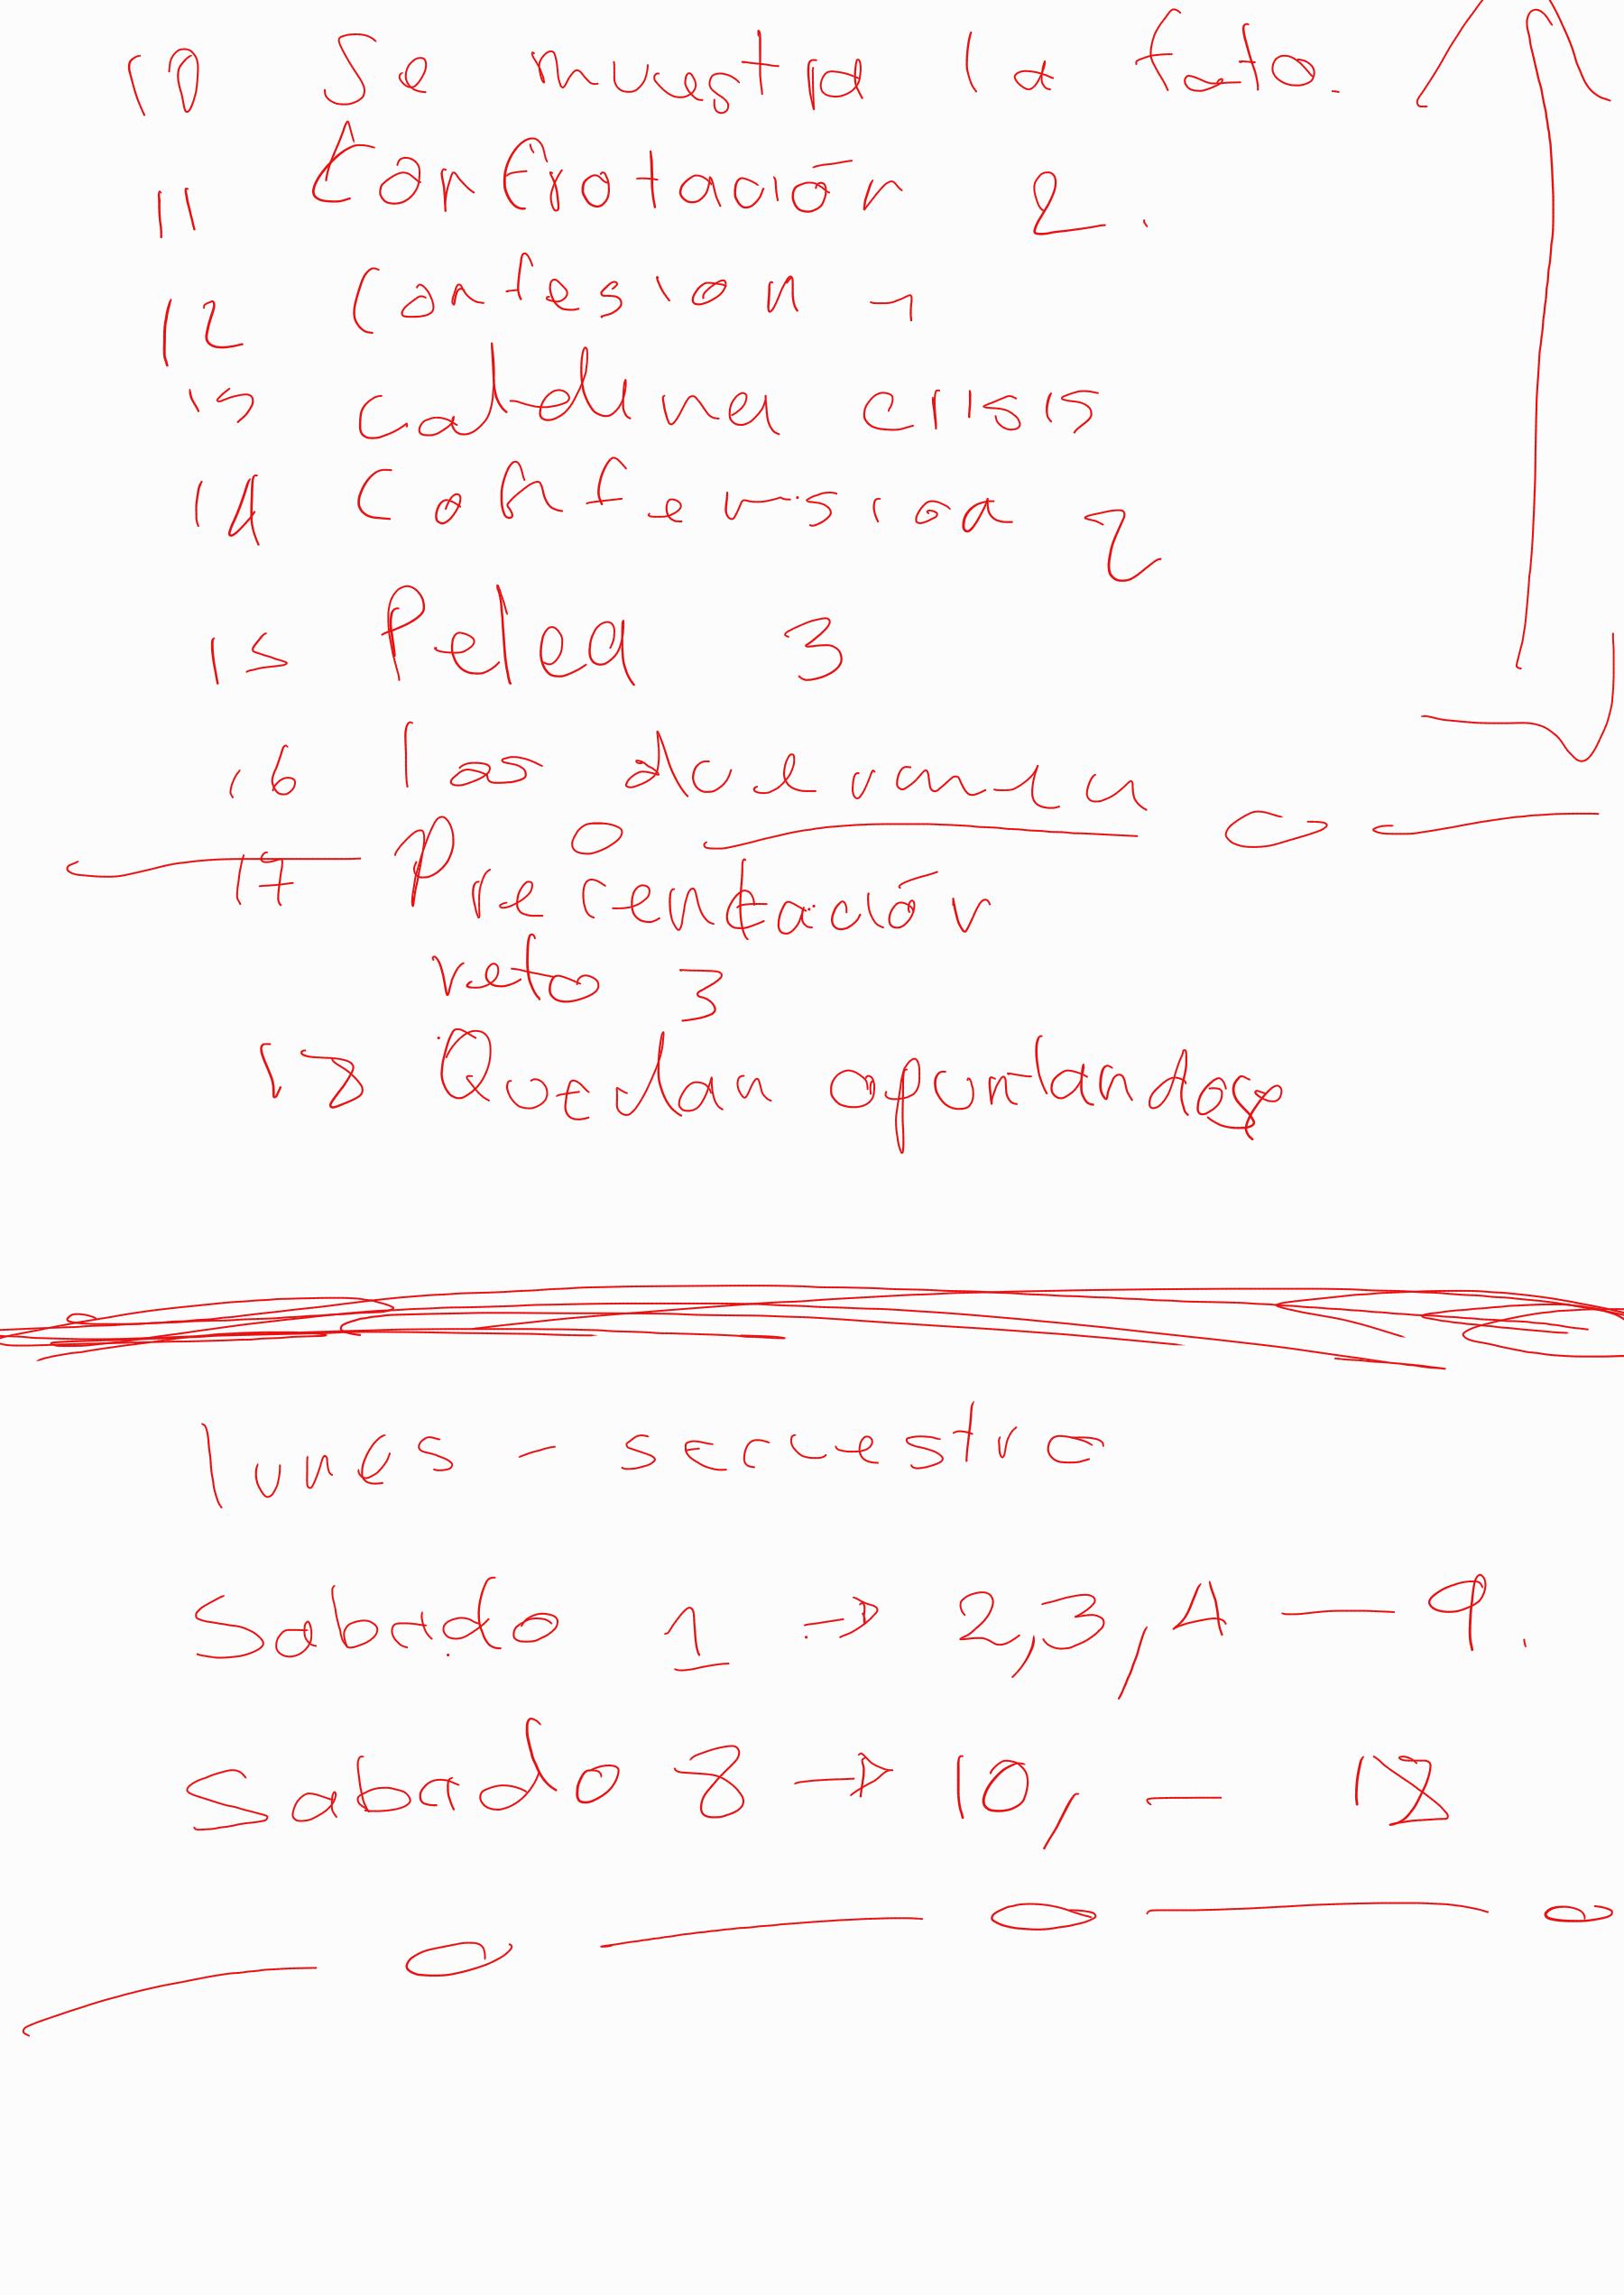 10 Se muestra la foto.
11 Confrotación 2.
12 Confesion 1
13 catalina crisis
14 Confension 2
15 Pelea 3
16 los duerman
17 Precentación
reto 3
18 Quedan apuntados
lunes - secuestro
Sabado 1 → 2,3,4 — 9.
Sabado 8 → 10, - 18